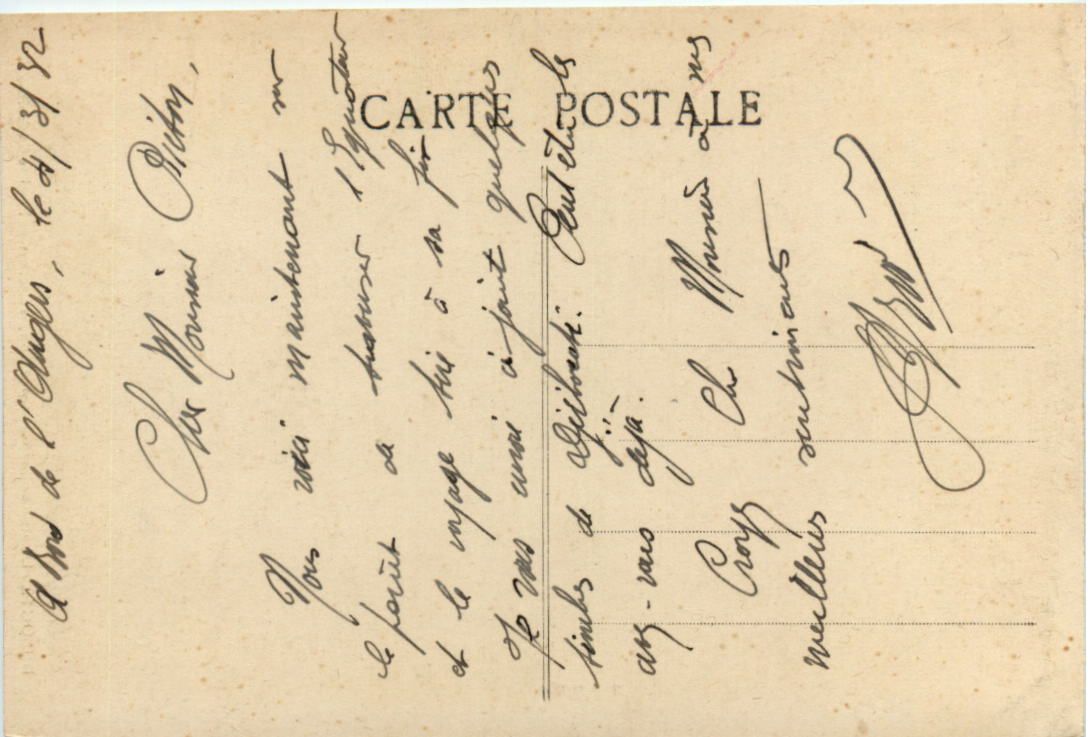 CARTE POSTALE
A Bord de l'Angers, le 4/3/52
Cher Monsieur
Nous voici maintenant sur
le point de traverser l'Equateur
et le voyage tire à sa fin
Je vous envoie ci joint quelques
timbres de Djibouti. Peut être les
avez-vous déjà.
Croyez Cher Monsieur à mes
meilleurs sentiments